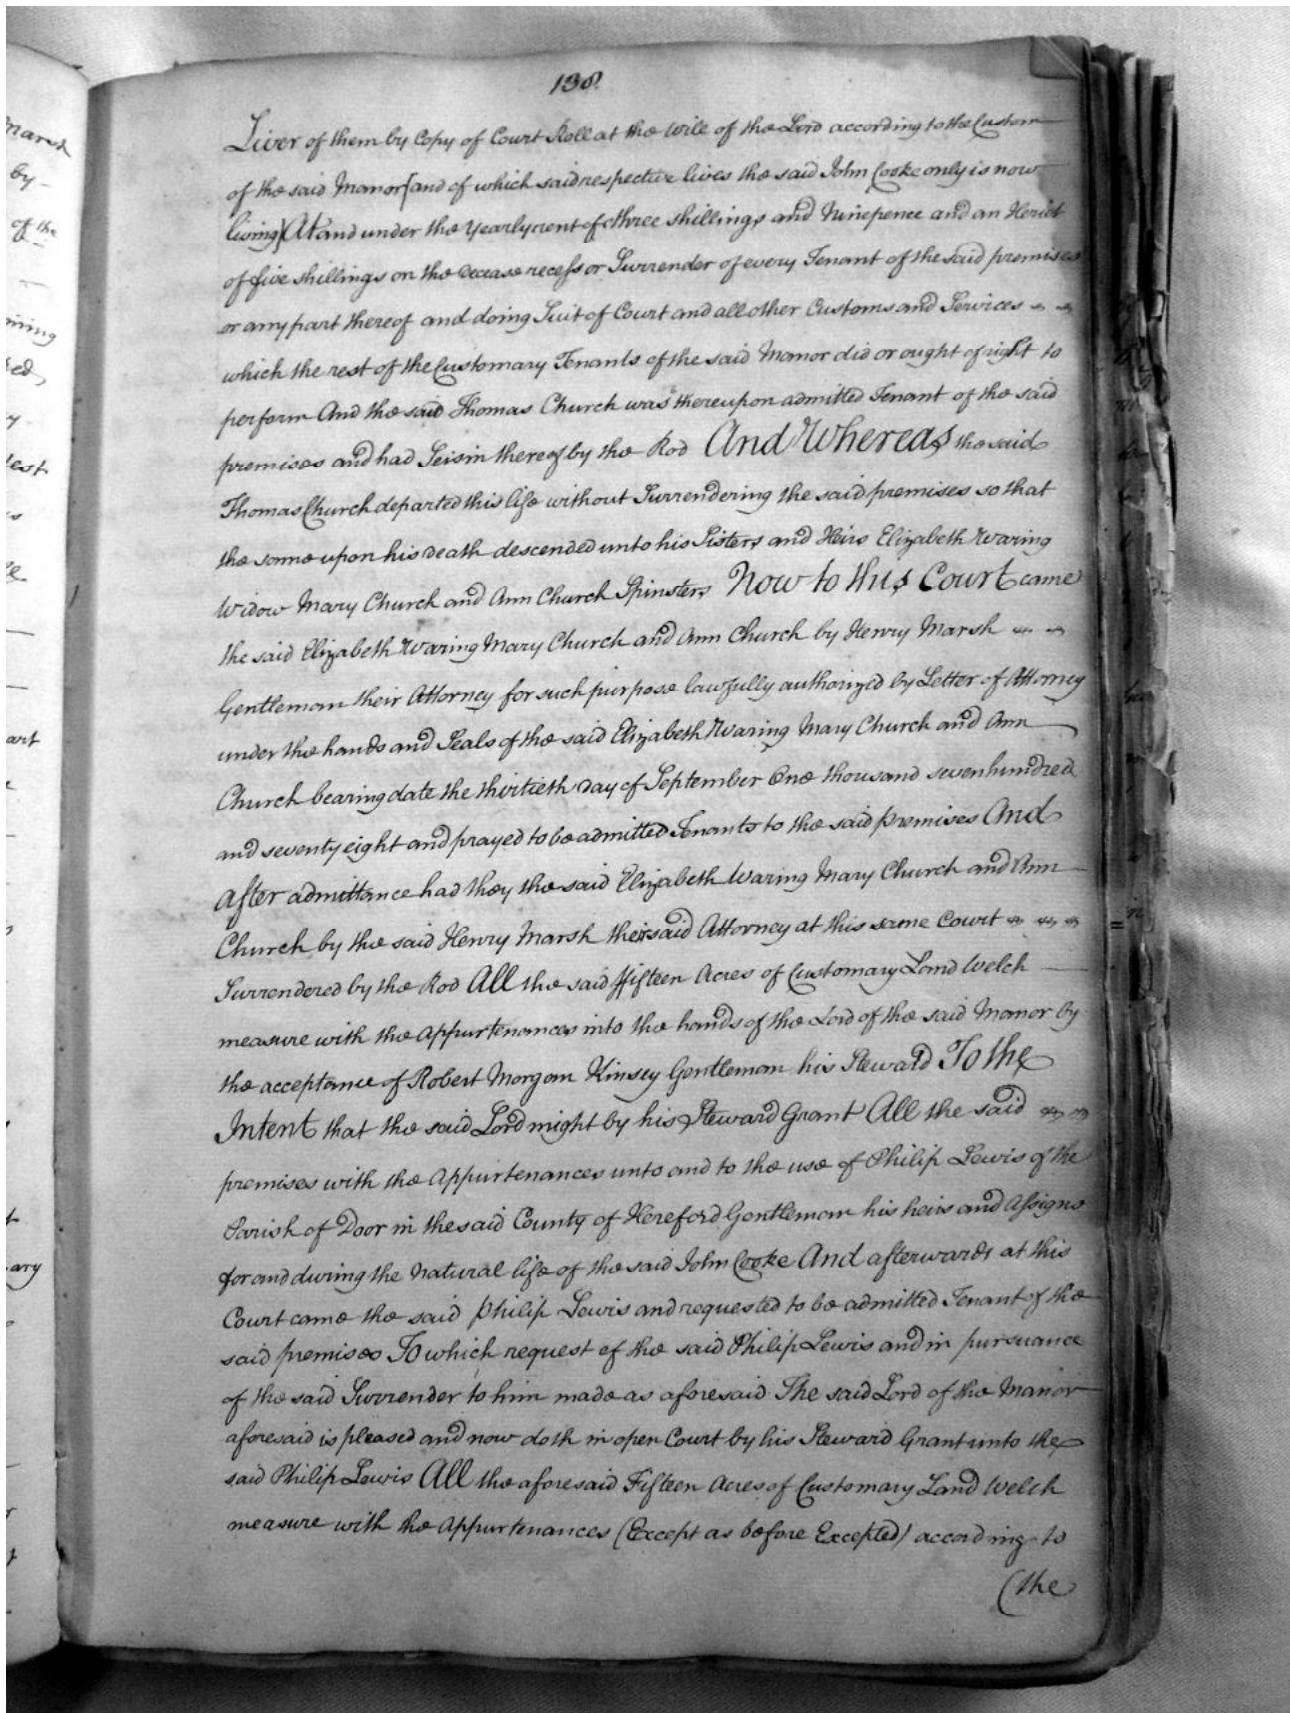 138
Liver of them by Copy of Court Roll at the will of the Lord according to the Custom
of the said Manor [and of which said respective lives the said John Cooke only is now
living] At and under the Yearly rent of three shillings and Ninepence and an Heriot
of five shillings on the decease recess or Surrender of every Tenant of the said premises
or any part thereof and doing Suit of Court and all other Customs and Services
which the rest of the Customary Tenants of the said Manor did or ought of right to
perform And the said Thomas Church was thereupon admitted Tenant of the said
premises and had Seisin thereof by the Rod And Whereas the said
Thomas Church departed this life without Surrendering the said premises so that
the same upon his death descended unto his Sisters and Heirs Elizabeth Waring
Widow Mary Church and Ann Church Spinsters Now to this Court came
the said Elizabeth Waring Mary Church and Ann Church by Henry Marsh
Gentleman their Attorney for such purpose lawfully authorized by Letter of Attorney
under the hands and Seals of the said Elizabeth Waring Mary Church and Ann
Church bearing date the thirtieth day of September One thousand seven hundred
and seventy eight and prayed to be admitted Tenants to the said premises And
after admittance had they the said Elizabeth Waring Mary Church and Ann
Church by the said Henry Marsh their said Attorney at this same Court
Surrendered by the Rod All the said ffifteen Acres of Customary Land Welch
measure with the Appurtenances into the hands of the Lord of the said Manor by
the acceptance of Robert Morgan Kinsey Gentleman his Steward To the
Intent that the said Lord might by his Steward Grant All the said
premises with the Appurtenances unto and to the use of Philip Lewis of the
Parish of Door in the said County of Hereford Gentleman his heirs and Assigns
for and during the natural life of the said John Cooke And afterwards at this
Court came the said Philip Lewis and requested to be admitted Tenant of the
said premises To which request of the said Philip Lewis and in pursuance
of the said Surrender to him made as aforesaid The said Lord of the Manor
aforesaid is pleased and now doth in open Court by his Steward Grant unto the
said Philip Lewis All the aforesaid Fifteen Acres of Customary Land Welch
measure with the Appurtenances (Except as before Excepted) according to
(the